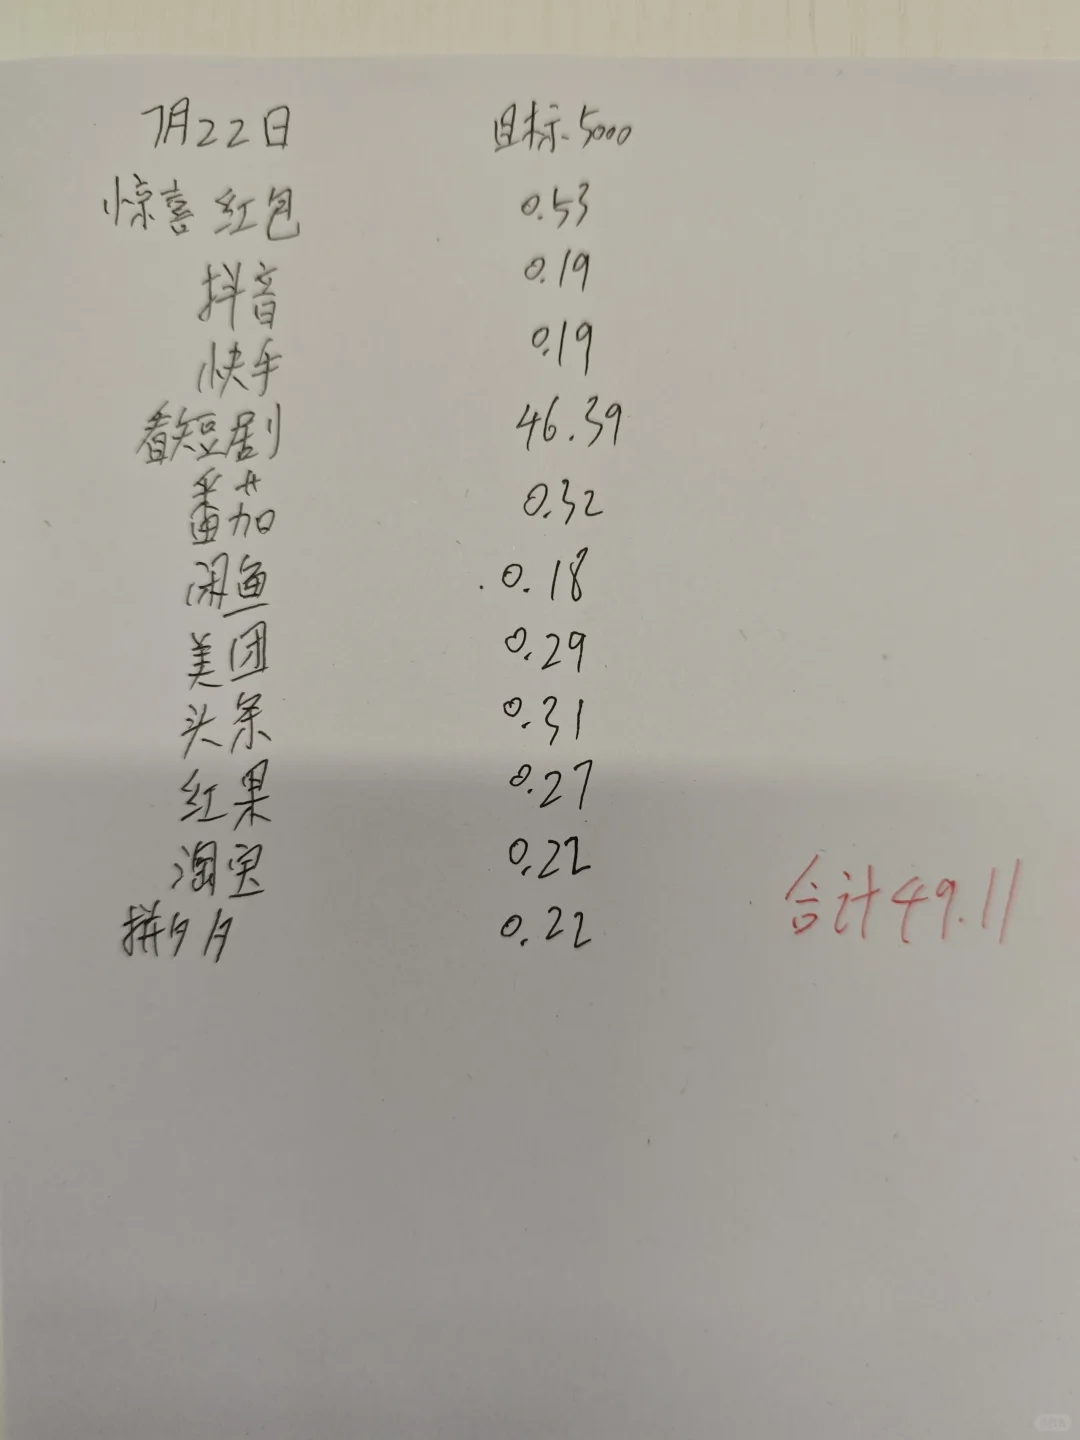 7月22日 目标5000
惊喜红包 0.53
抖音 0.19
快手 0.19
看短剧 46.39
番茄 0.32
闲鱼 0.18
美团 0.29
头条 0.31
红果 0.27
淘宝 0.22
拼夕夕 0.22
合计49.11